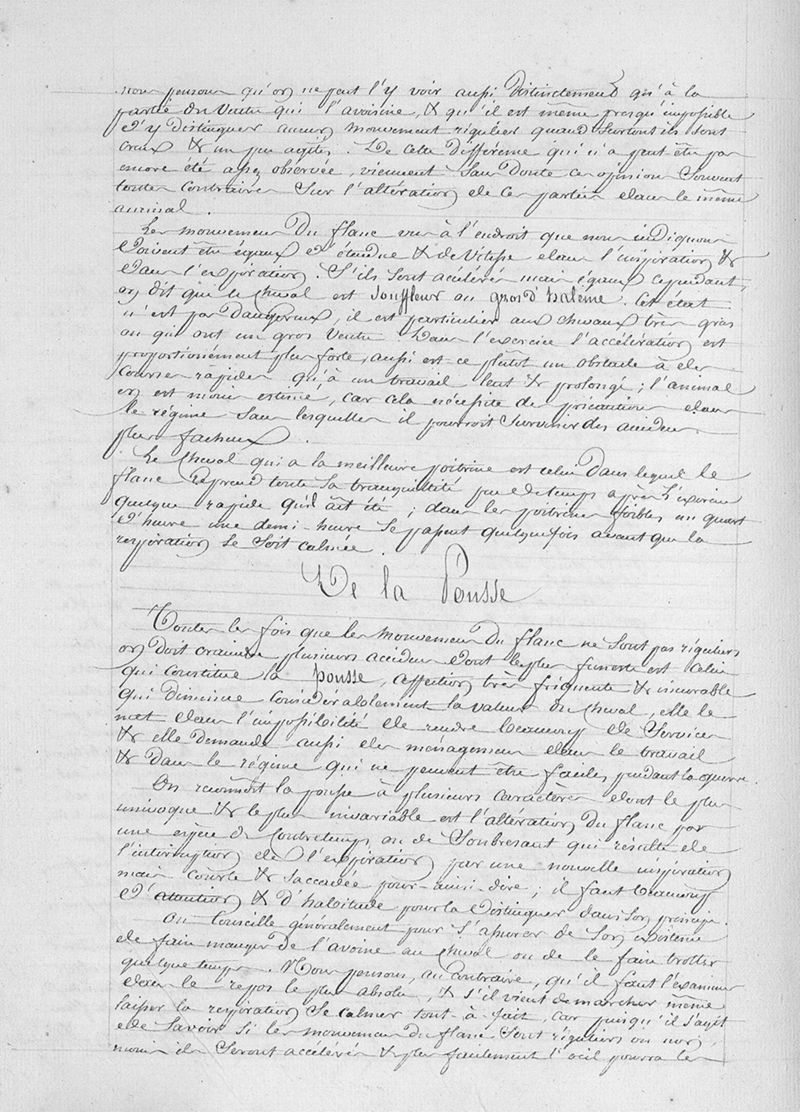 nous pensons qu'on ne peut l'y voir aussi distinctement qu'à la
partie du ventre qui l'avoisine, & qu'il est même presqu'impossible
d'y distinguer aucun mouvement régulier quand surtout ils sont
creux & un peu agités. De cette différence qui n'a peut être pas
encore été assez observée, viennent sans doute ces opinions souvent
toutes contraires sur l'altération de ces parties dans le même
animal.
Les mouvemens du flanc vus à l'endroit que nous indiquons
doivent être égaux d'étendue & de vitesse dans l'inspiration &
dans l'expiration. S'ils sont accélérés mais égaux cependant,
on dit que le cheval est souffleur ou gros d'haleine. Cet état
n'est pas dangereux, il est particulier aux chevaux très gras
ou qui ont un gros ventre. Dans l'exercice l'accélération est
proportionnément plus forte, aussi est ce plutôt un obstacle à des
courses rapides qu'à un travail lent & prolongé ; l'animal
en est moins estimé, car cela nécessite des précautions dans
le régime sans lesquelles il pourroit survenir des accidens
plus facheux.
Le cheval qui a la meilleure poitrine est celui dans lequel le
flanc reprend toute sa tranquillité peu de temps après l'exercice
quelque rapide qu'il ait été ; dans les poitrines foibles un quart
d'heure une demi-heure se passent quelquefois avant que la
respiration se soit calmée.
De la Pousse
Toutes les fois que les mouvemens du flanc ne sont pas réguliers
on doit craindre plusieurs accidens dont le plus funeste est celui
qui constitue la pousse, affection très fréquente & incurable
qui diminue considérablement la valeur du cheval, elle le
met dans l'impossibilité de rendre beaucoup de services
& elle demande aussi des ménagemens dans le travail
& dans le régime qui ne peuvent être faciles pendant la guerre.
On reconnoît la pousse à plusieurs caractères dont le plus
univoque & le plus invariable est l'altération du flanc par
une espèce de contretemps ou de soubresaut qui résulte de
l'interruption de l'expiration par une nouvelle inspiration
mais courte & saccadée pour-ainsi-dire ; il faut beaucoup
d'attention & d'habitude pour la distinguer dans son principe.
On conseille généralement pour s'assurer de son existence
de faire manger de l'avoine au cheval ou de le faire trotter
quelque temps. Nous pensons, au contraire, qu'il faut l'examiner
dans le repos le plus absolu, & s'il vient de marcher même
laisser la respiration se calmer tout-à-fait, car puisqu'il s'agit
de savoir si les mouvemens du flanc sont réguliers ou non,
moins ils seront accélérés & plus facilement l'oeil pourra les